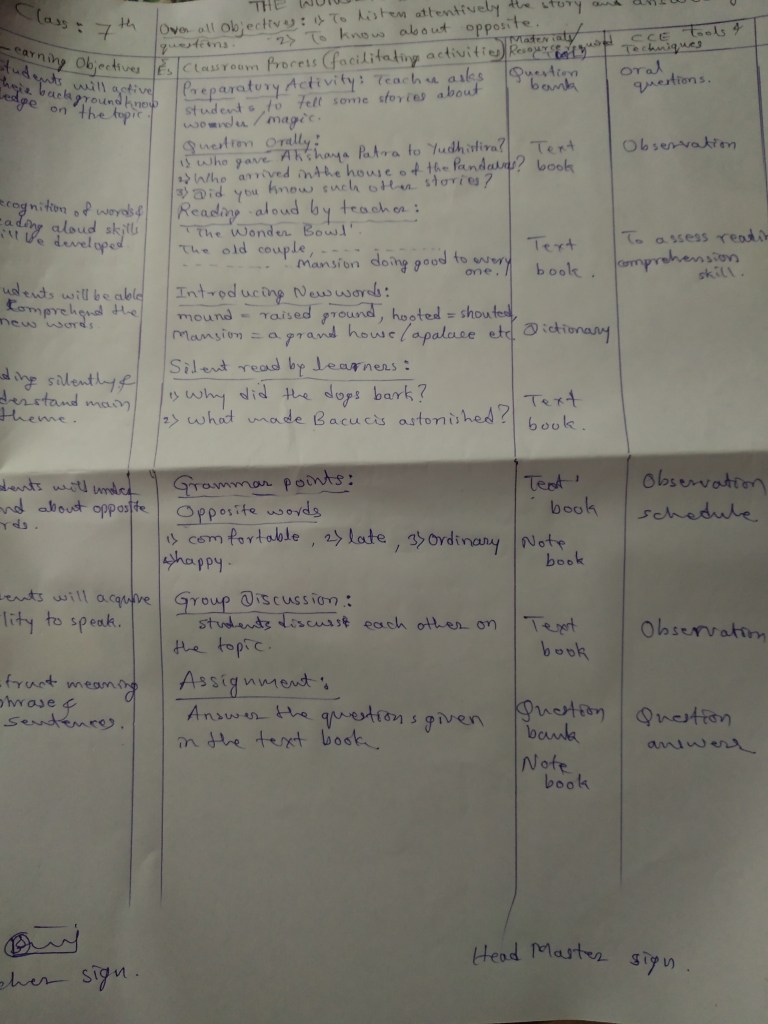 THE
Class: 7th
Over all Objectives: 1) To listen attentively the story and
questions. 2) To know about opposite.
Learning Objectives
Es
Classroom Process (facilitating activities)
Materials/
Resource required
CCE Tools &
Techniques
students will active
their background know
ledge on the topic.
Preparatory Activity: Teacher asks
students to tell some stories about
wonder/magic.
Question
bank
Oral
questions.
Question Orally:
1) Who gave Akshaya Patra to Yudhistira?
2) Who arrived in the house of the Pandavas?
3) Did you know such other stories?
Text
book
Observation
ecognition of words &
eading aloud skills
ill be developed.
Reading aloud by teacher:
"The Wonder Bowl".
The old couple, - - - - - - - - - -
- - - - - - - - - Mansion doing good to every
one.
Text
book.
To assess readin
comprehension
skill.
udents will be able
comprehend the
new words
Introducing New words:
mound = raised ground, hooted = shouted,
Mansion = a grand house/apalace etc
Dictionary
ding silently &
derstand main
theme.
Silent read by learners:
1) Why did the dogs bark?
2) What made Bacucis astonished?
Text
book.
dents will under
nd about opposite
rds.
Grammar points:
Opposite words
1) comfortable, 2) late, 3) ordinary
4) happy.
Text
book
Note
book
Observation
schedule
ents will acquire
lity to speak.
Group Discussion:
students discusst each other on
the topic.
Text
book
Observation
struct meaning
phrase &
sentences.
Assignment:
Answer the questions given
in the text book
Question
bank
Note
book
Question
answers
cher sign.
Head Master sign.